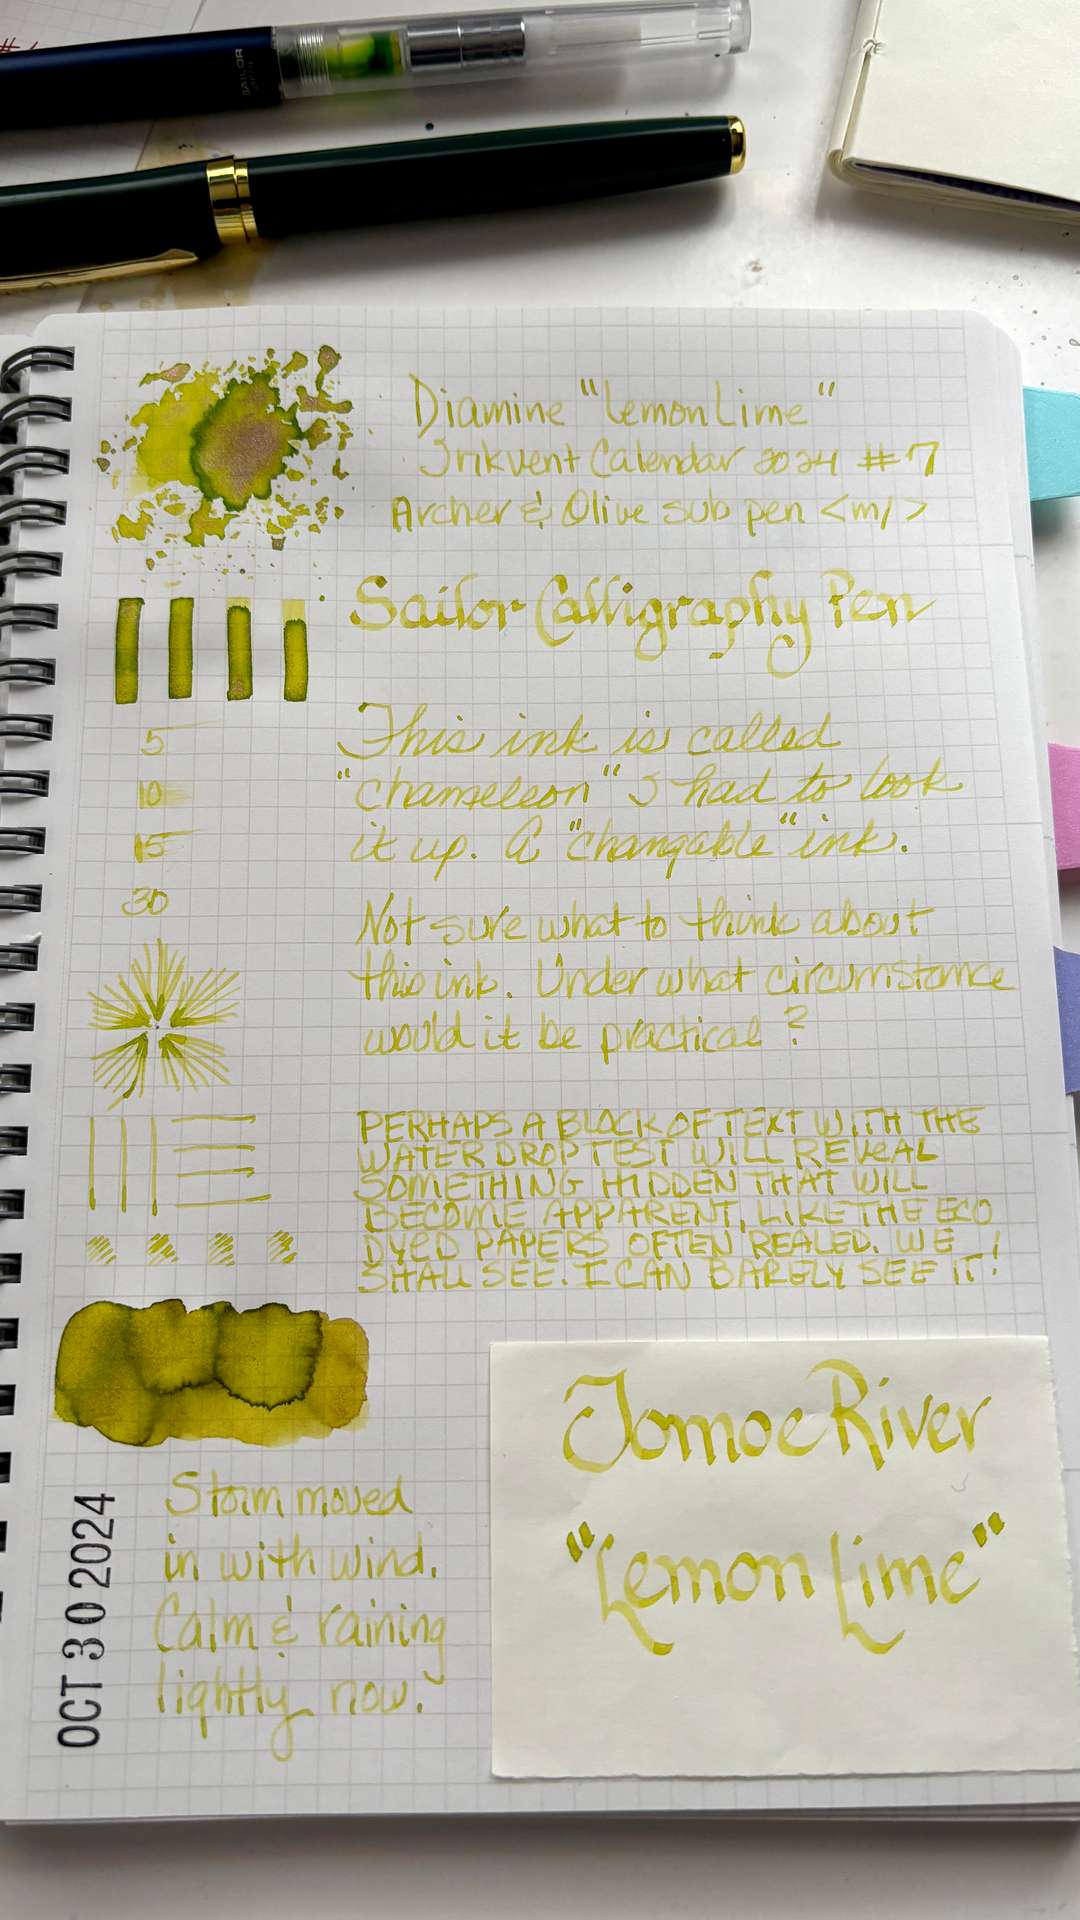 SAILOR
Diamine "Lemon Lime"
Inkvent Calendar 2024 #7
Archer & Olive sub pen <m/>
Sailor Calligraphy Pen
This ink is called
"chameleon" I had to look
it up. A "changable" ink.
5
10
15
30
Not sure what to think about
this ink. Under what circumstance
would it be practical?
PERHAPS A BLOCK OF TEXT WITH THE
WATER DROP TEST WILL REVEAL
SOMETHING HIDDEN THAT WILL
BECOME APPARENT, LIKE THE ECO
DYED PAPERS OFTEN REALED. WE
SHALL SEE. I CAN BARELY SEE IT!
Tomoe River
"Lemon Lime"
Storm moved
in with wind.
Calm & raining
lightly now.
OCT 30 2024